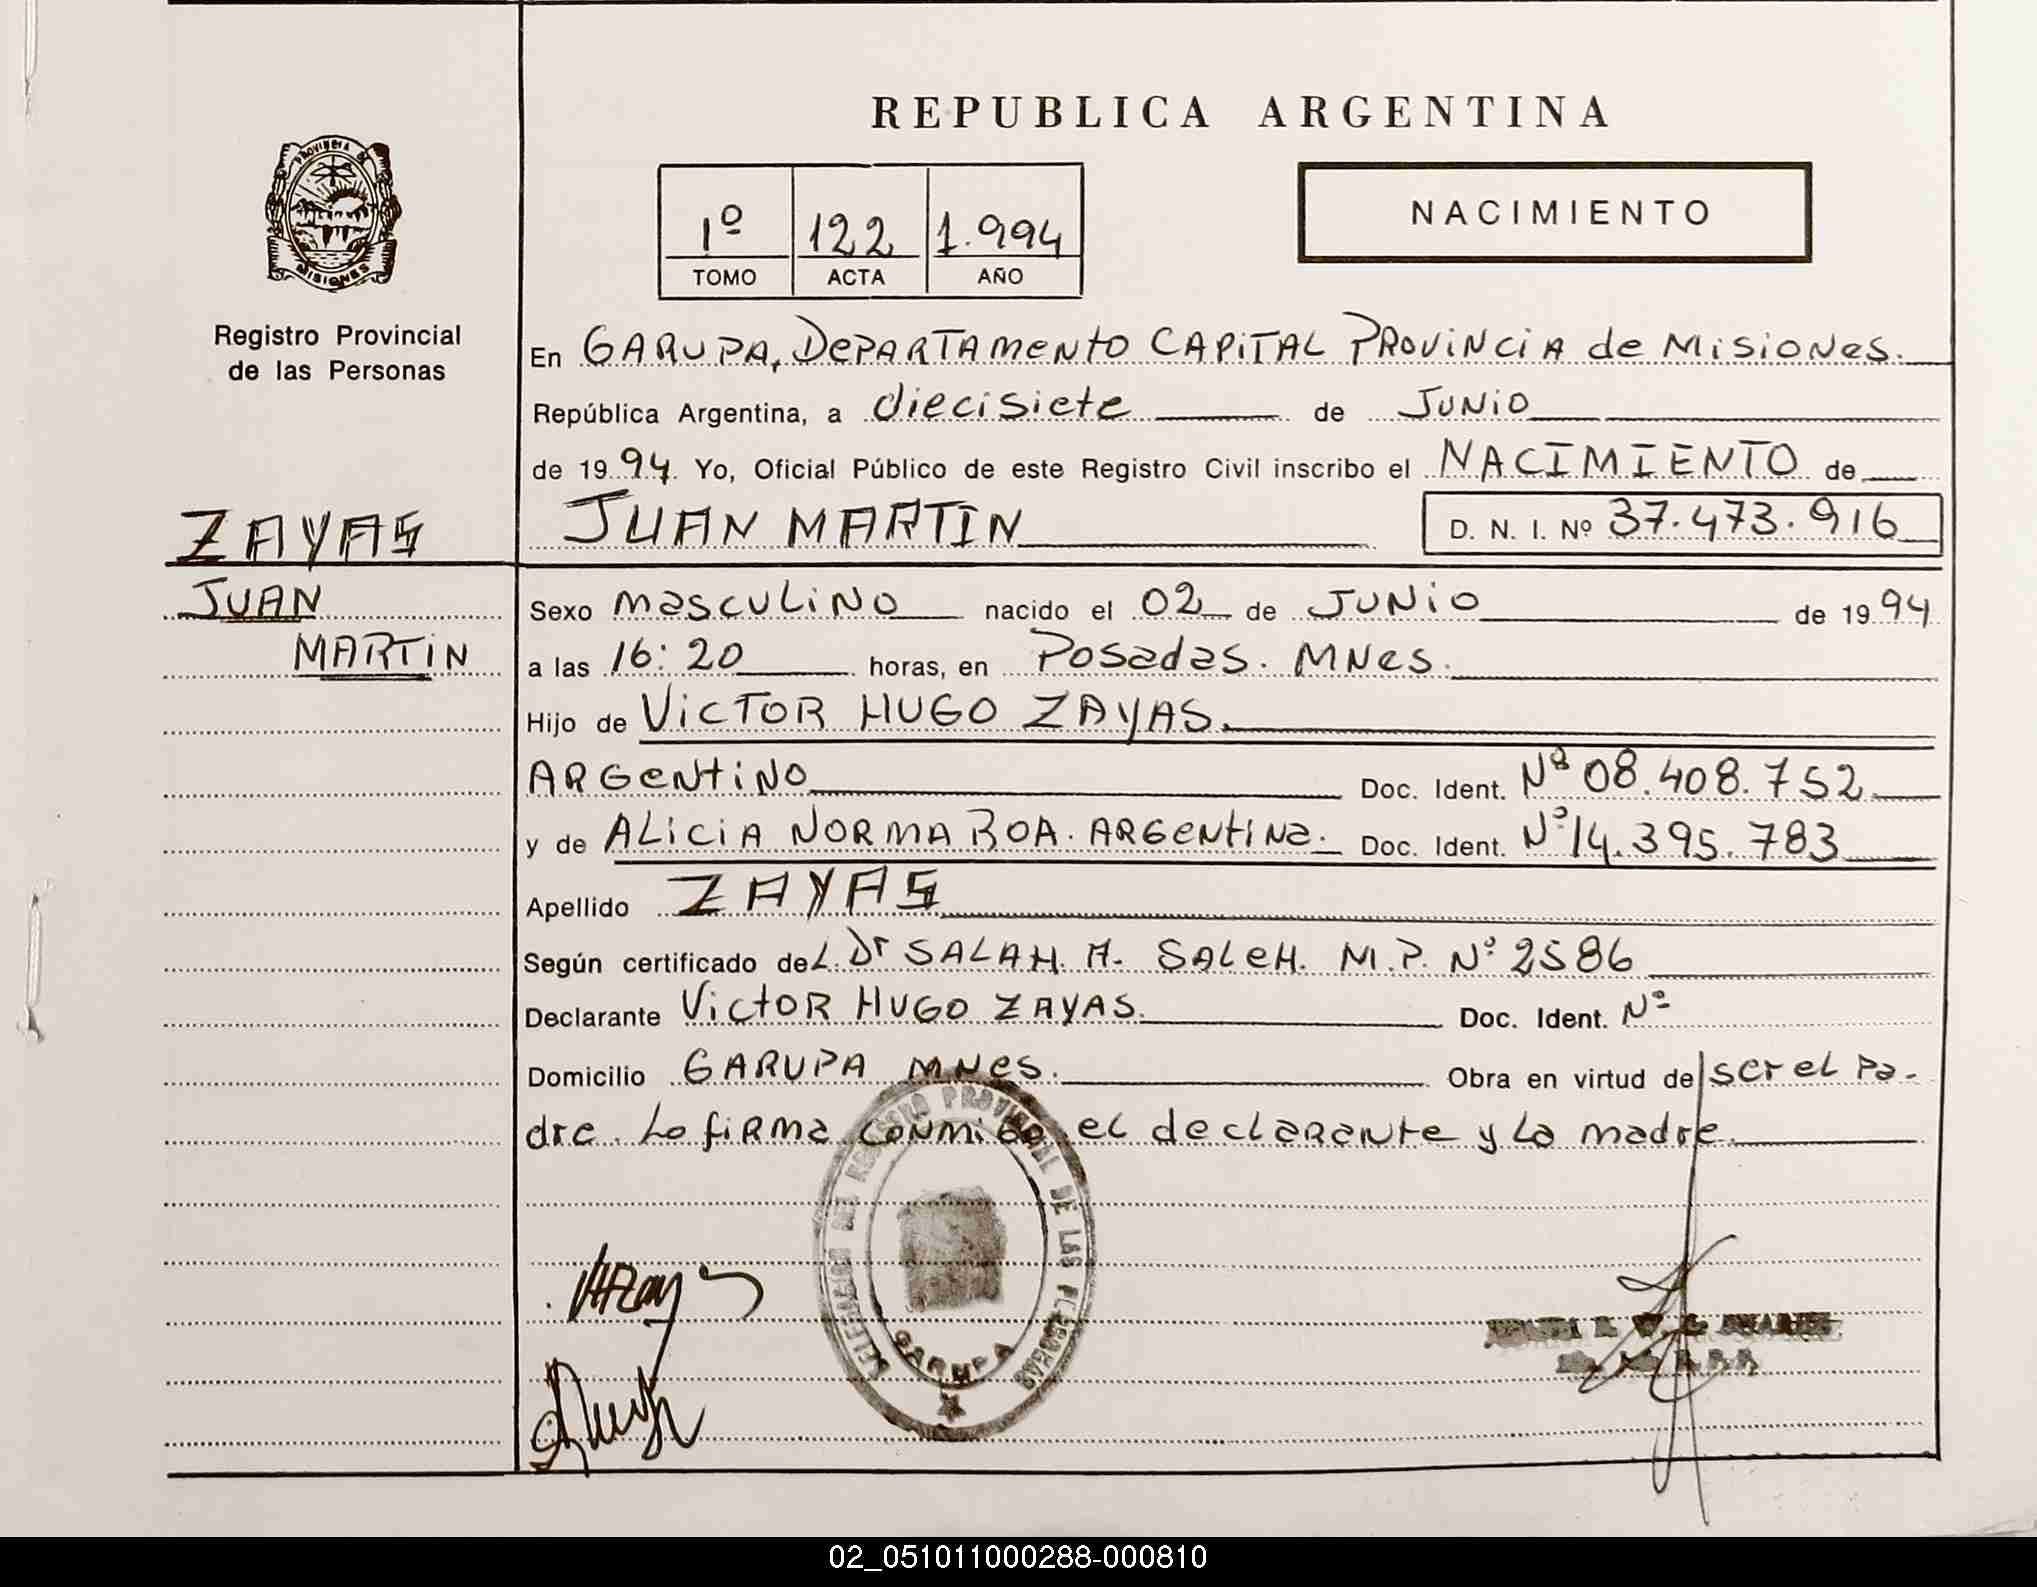 REPUBLICA ARGENTINA
PROVINCIA DE
MISIONES
Registro Provincial
de las Personas
1º 122 1.994
TOMO ACTA AÑO
NACIMIENTO
En GARUPA, DEPARTAMENTO CAPITAL PROVINCIA de MISIONES.
República Argentina, a diecisiete de JUNIO
de 1994. Yo, Oficial Público de este Registro Civil inscribo el NACIMIENTO de
ZAYAS
JUAN
MARTIN
JUAN MARTIN D. N. I. Nº 37.473.916
Sexo masculino nacido el 02 de JUNIO de 1994
a las 16:20 horas, en Posadas. MNes.
Hijo de VICTOR HUGO ZAYAS.
ARGENTINO Doc. Ident. Nº 08.408.752
y de ALICIA NORMA BOA. ARGENTINA. Doc. Ident. Nº 14.395.783
Apellido ZAYAS
Según certificado deL. Dr SALAH. H. SALEH. M.P. Nº 2586
Declarante VICTOR HUGO ZAYAS. Doc. Ident. Nº
Domicilio GARUPA MNes. Obra en virtud de ser el pa-
dre. Lo firma conmigo el declarante y la madre.
DELEGACION DEL REGISTRO PROVINCIAL DE LAS PERSONAS
GARUPA
02_051011000288-000810